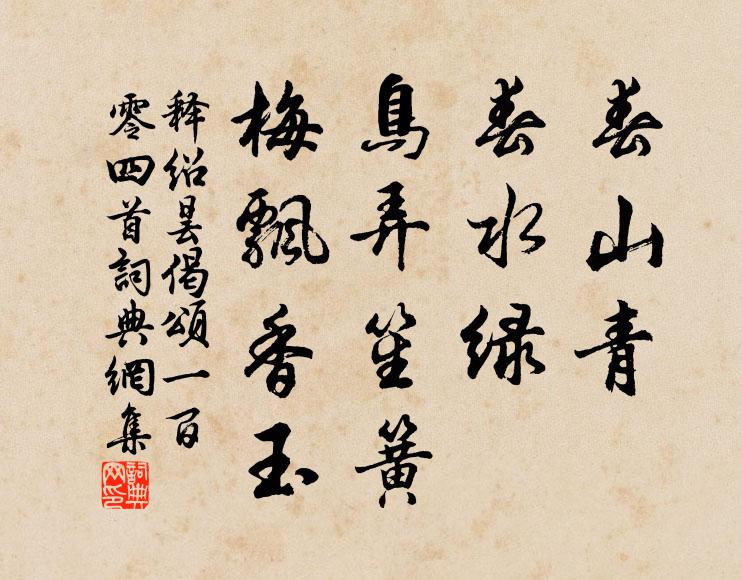 春山青
春水绿
鳥弄笙簧
梅飄香玉
释绍昙偈頌一百
零四首詞典網集
詞典
网印